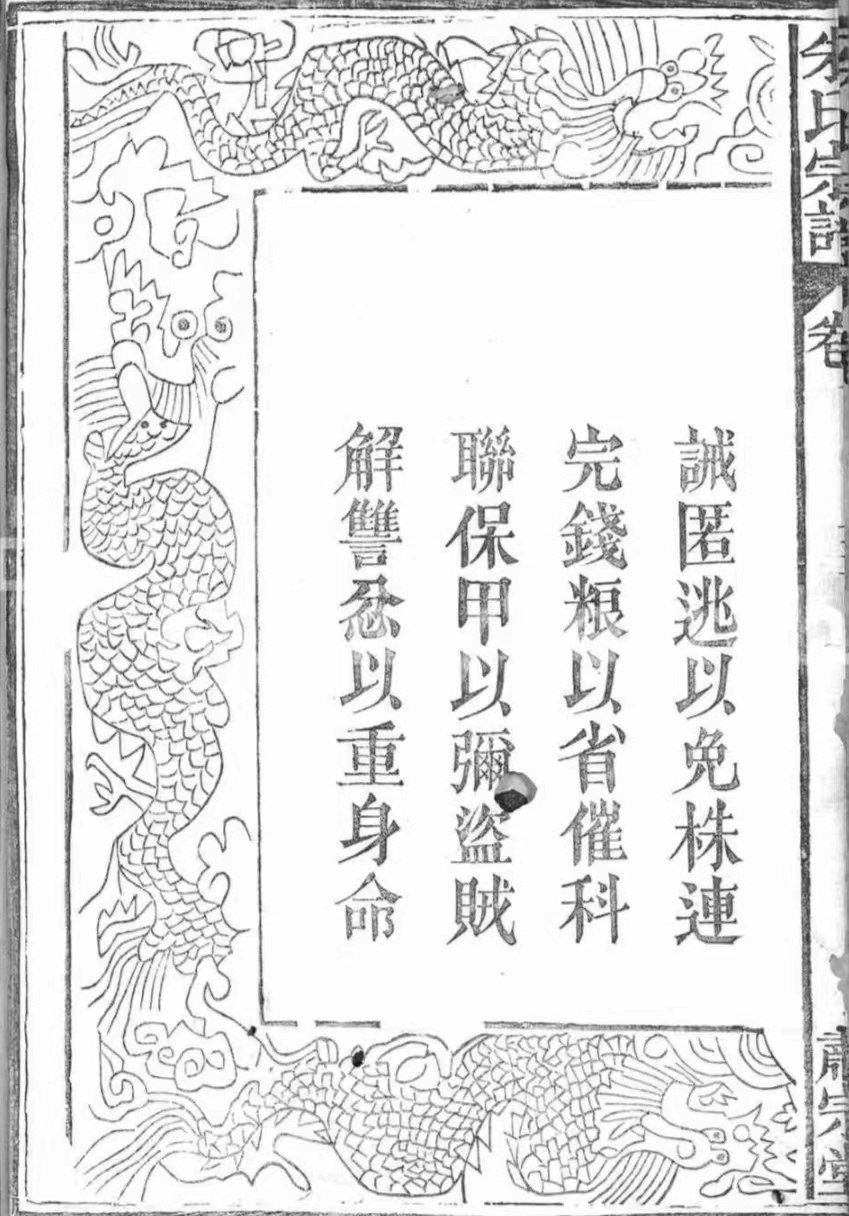 氏宗譜
卷
堂
誡匿逃以免株連
完錢粮以省催科
聯保甲以彌盜賊
解讐忿以重身命